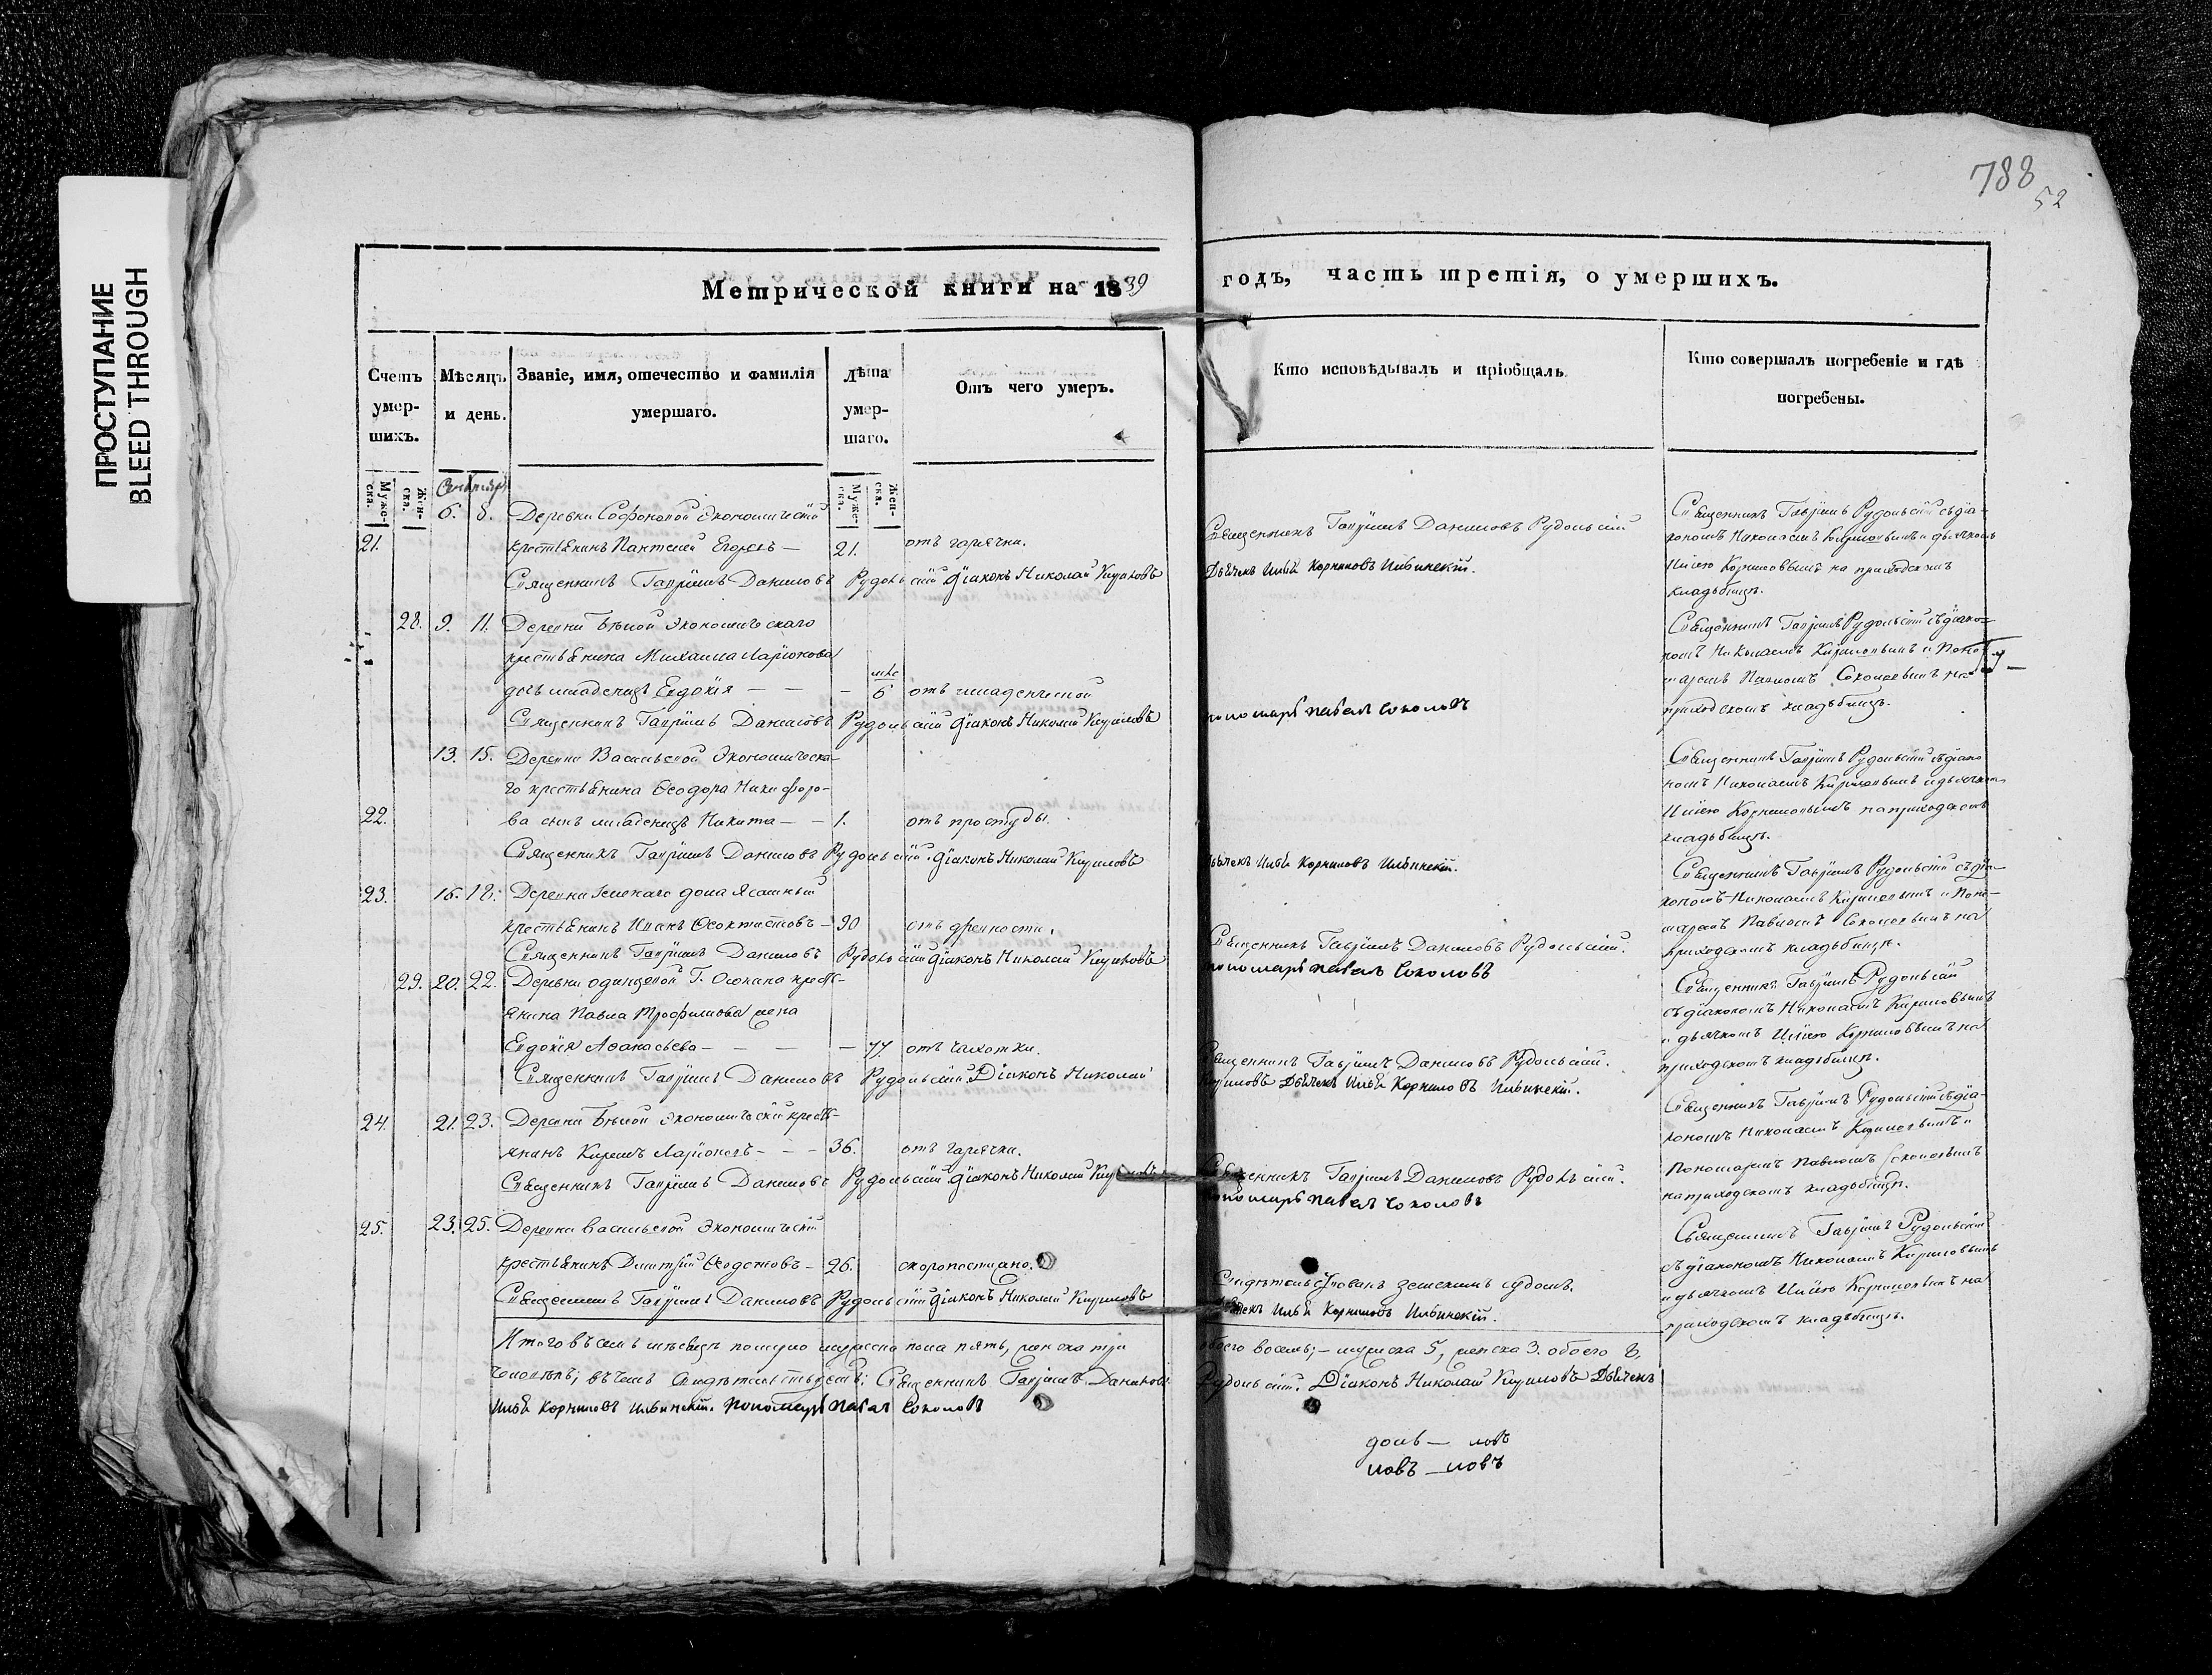 788
52
ПРОСТУПАНИЕ
BLEED THROUGH
Метрической книги на 1839
годъ, часть третія, о умершихъ.
Счетъ умер-
шихъ.
Мѣсяцъ
и день.
Званіе, имя, отечество и фамилія
умершаго.
Лѣта
умер-
шаго.
Отъ чего умеръ.
Кто исповѣдывалъ и пріобщалъ
Кто совершалъ погребеніе и гдѣ
погребены.
Муже-
ска.
Жен-
ска.
Муже-
ска.
Жен-
ска.
Сентября
6. 8. Деревни Софоновой Экономическій
21. крестьянинъ Пантелей Егоровъ — 21. отъ горячки.
Священникъ Гавріилъ Даниловъ Рудольскій Діаконъ Николай Кириловъ
Священникъ Гавріилъ Даниловъ Рудольскій
Дьячекъ Илья Корниловъ Ильинскій.
Священникъ Гавріилъ Рудольскій съ діа-
кономъ Николаемъ Кириловымъ и дьячкомъ
Ильею Корниловымъ на приходскомъ
кладбищѣ.
28. 9. 11. Деревни Бѣлой Экономическаго
крестьянина Михаила Ларіонова
дочь младенецъ Евдокія — — — мѣс 6 отъ младенческой
Священникъ Гавріилъ Даниловъ Рудольскій Діаконъ Николай Кириловъ
пономарь Павелъ Соколовъ
Священникъ Гавріилъ Рудольскій съ діако-
номъ Николаемъ Кириловымъ и Поно-
маремъ Павломъ Соколовымъ на
приходскомъ кладбищѣ.
13. 15. Деревни Васильевой Экономическа-
го крестьянина Ѳеодора Никифоро-
22. ва сынъ младенецъ Никита — — 1. отъ простуды.
Священникъ Гавріилъ Даниловъ Рудольскій. Діаконъ Николай Кириловъ
Дьячекъ Илья Корниловъ Ильинскій.
Священникъ Гавріилъ Рудольскій съ діако
номъ Николаемъ Кириловымъ и дьячкомъ
Ильею Корниловымъ на приходскомъ
кладбищѣ.
23. 16. 18. Деревни дома Ясашный
крестьянинъ Иванъ Ѳеоктистовъ — 90 отъ дряхлости.
Священникъ Гавріилъ Даниловъ Рудольскій Діаконъ Николай Кириловъ
Священникъ Гавріилъ Даниловъ Рудольскій.
пономарь Павелъ Соколовъ
Священникъ Гавріилъ Рудольскій съ діа-
кономъ Николаемъ Кириловымъ и Поно-
маремъ Павломъ Соколовымъ на
приходскомъ кладбищѣ.
29. 20. 22. Деревни Одинцовой Г. крестъ-
янина Павла Трофимова жена
Евдокія Аѳанасьева — — — — 77. отъ чахотки.
Священникъ Гавріилъ Даниловъ Рудольскій. Діаконъ Николай
Священникъ Гавріилъ Даниловъ Рудольскій.
Кириловъ Дьячекъ Илья Корниловъ Ильинскій.
Священникъ Гавріилъ Рудольскій
съ діакономъ Николаемъ Кириловымъ
и дьячкомъ Ильею Корниловымъ на
приходскомъ кладбищѣ.
24. 21. 23. Деревни Бѣлой Экономическій крестъ-
янинъ Ларіоновъ — — — 36. отъ горячки.
Священникъ Гавріилъ Даниловъ Рудольскій Діаконъ Николай Кириловъ
Священникъ Гавріилъ Даниловъ Рудольскій.
пономарь Павелъ Соколовъ
Священникъ Гавріилъ Рудольскій съ діа-
кономъ Николаемъ Кириловымъ и
Пономаремъ Павломъ Соколовымъ
на приходскомъ кладбищѣ.
25. 23. 25. Деревни Васильевой Экономическій
крестьянинъ Дмитрій Ѳедотовъ — 26. скоропостижно.
Священникъ Гавріилъ Даниловъ Рудольскій Діаконъ Николай Кириловъ
Свидѣтельствованъ земскимъ судомъ.
Дьячекъ Илья Корниловъ Ильинскій.
Священникъ Гавріилъ Рудольскій
съ діакономъ Николаемъ Кириловымъ
и дьячкомъ Ильею Корниловымъ на
приходскомъ кладбищѣ.
Итого въ семъ мѣсяцѣ померло мужеска пола пять, женска три
обоего восемь; — мужска 5, женска 3. обоего 8.
человѣкъ; въ чемъ свидѣтельствуютъ: Священникъ Гавріилъ Даниловъ
Рудольскій. Діаконъ Николай Кириловъ Дьячекъ
Илья Корниловъ Ильинскій. Пономарь Павелъ Соколовъ
доль — ловъ
ловъ — ловъ